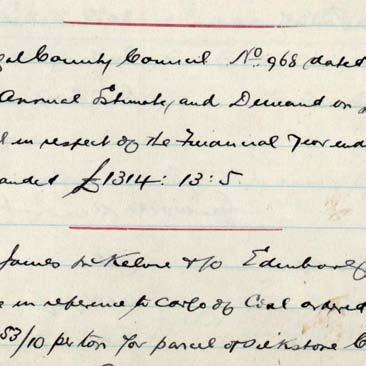 gal County Council No. 968 dated
Annual Estimate, and Demand on
in respect of the Financial Year end
anded £1314 : 13 : 5.
James McKelvie & Co Edinburg
in reference to cargo of Coal ordered
53/10 per ton for parcel of Silkstone C